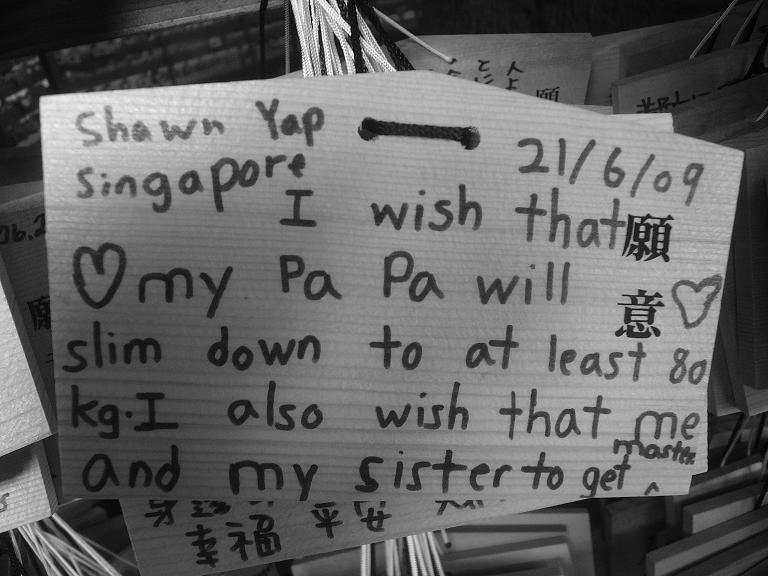 Shawn Yap
singapore
21/6/09
I wish that
my Pa Pa will
slim down to at least 80
kg. I also wish that me
and my sister to get
願意
幸福 平安
願
願